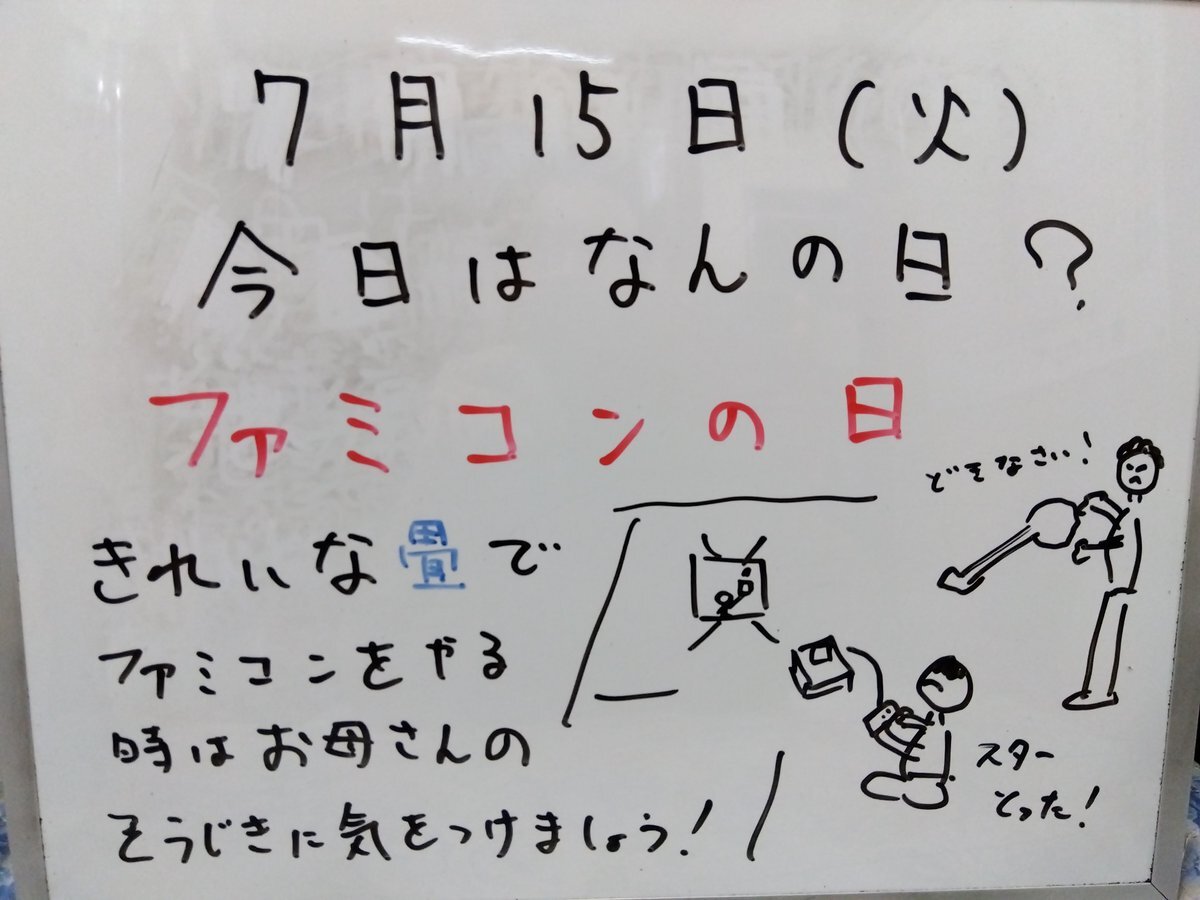 7月15日(火)
今日はなんの日?
ファミコンの日
きれいな畳で
ファミコンをやる
時はお母さんの
そうじきに気をつけましょう!
どきなさい!
スター
とった!